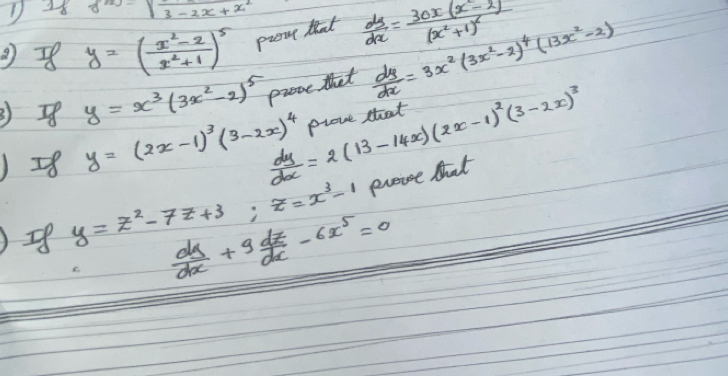 1) If
3 - 2x + x²
2) If y = ((x² - 2)/(x² + 1))⁵ prove that dy/dx = 30x(x² - 2)/(x² + 1)⁶
3) If y = x³(3x² - 2)⁵ prove that dy/dx = 3x²(3x² - 2)⁴(13x² - 2)
) If y = (2x - 1)³(3 - 2x)⁴ prove that
dy/dx = 2(13 - 14x)(2x - 1)²(3 - 2x)³
) If y = z² - 7z + 3 ; z = x³ - 1 prove that
dy/dx + 9 dz/dx - 6x⁵ = 0